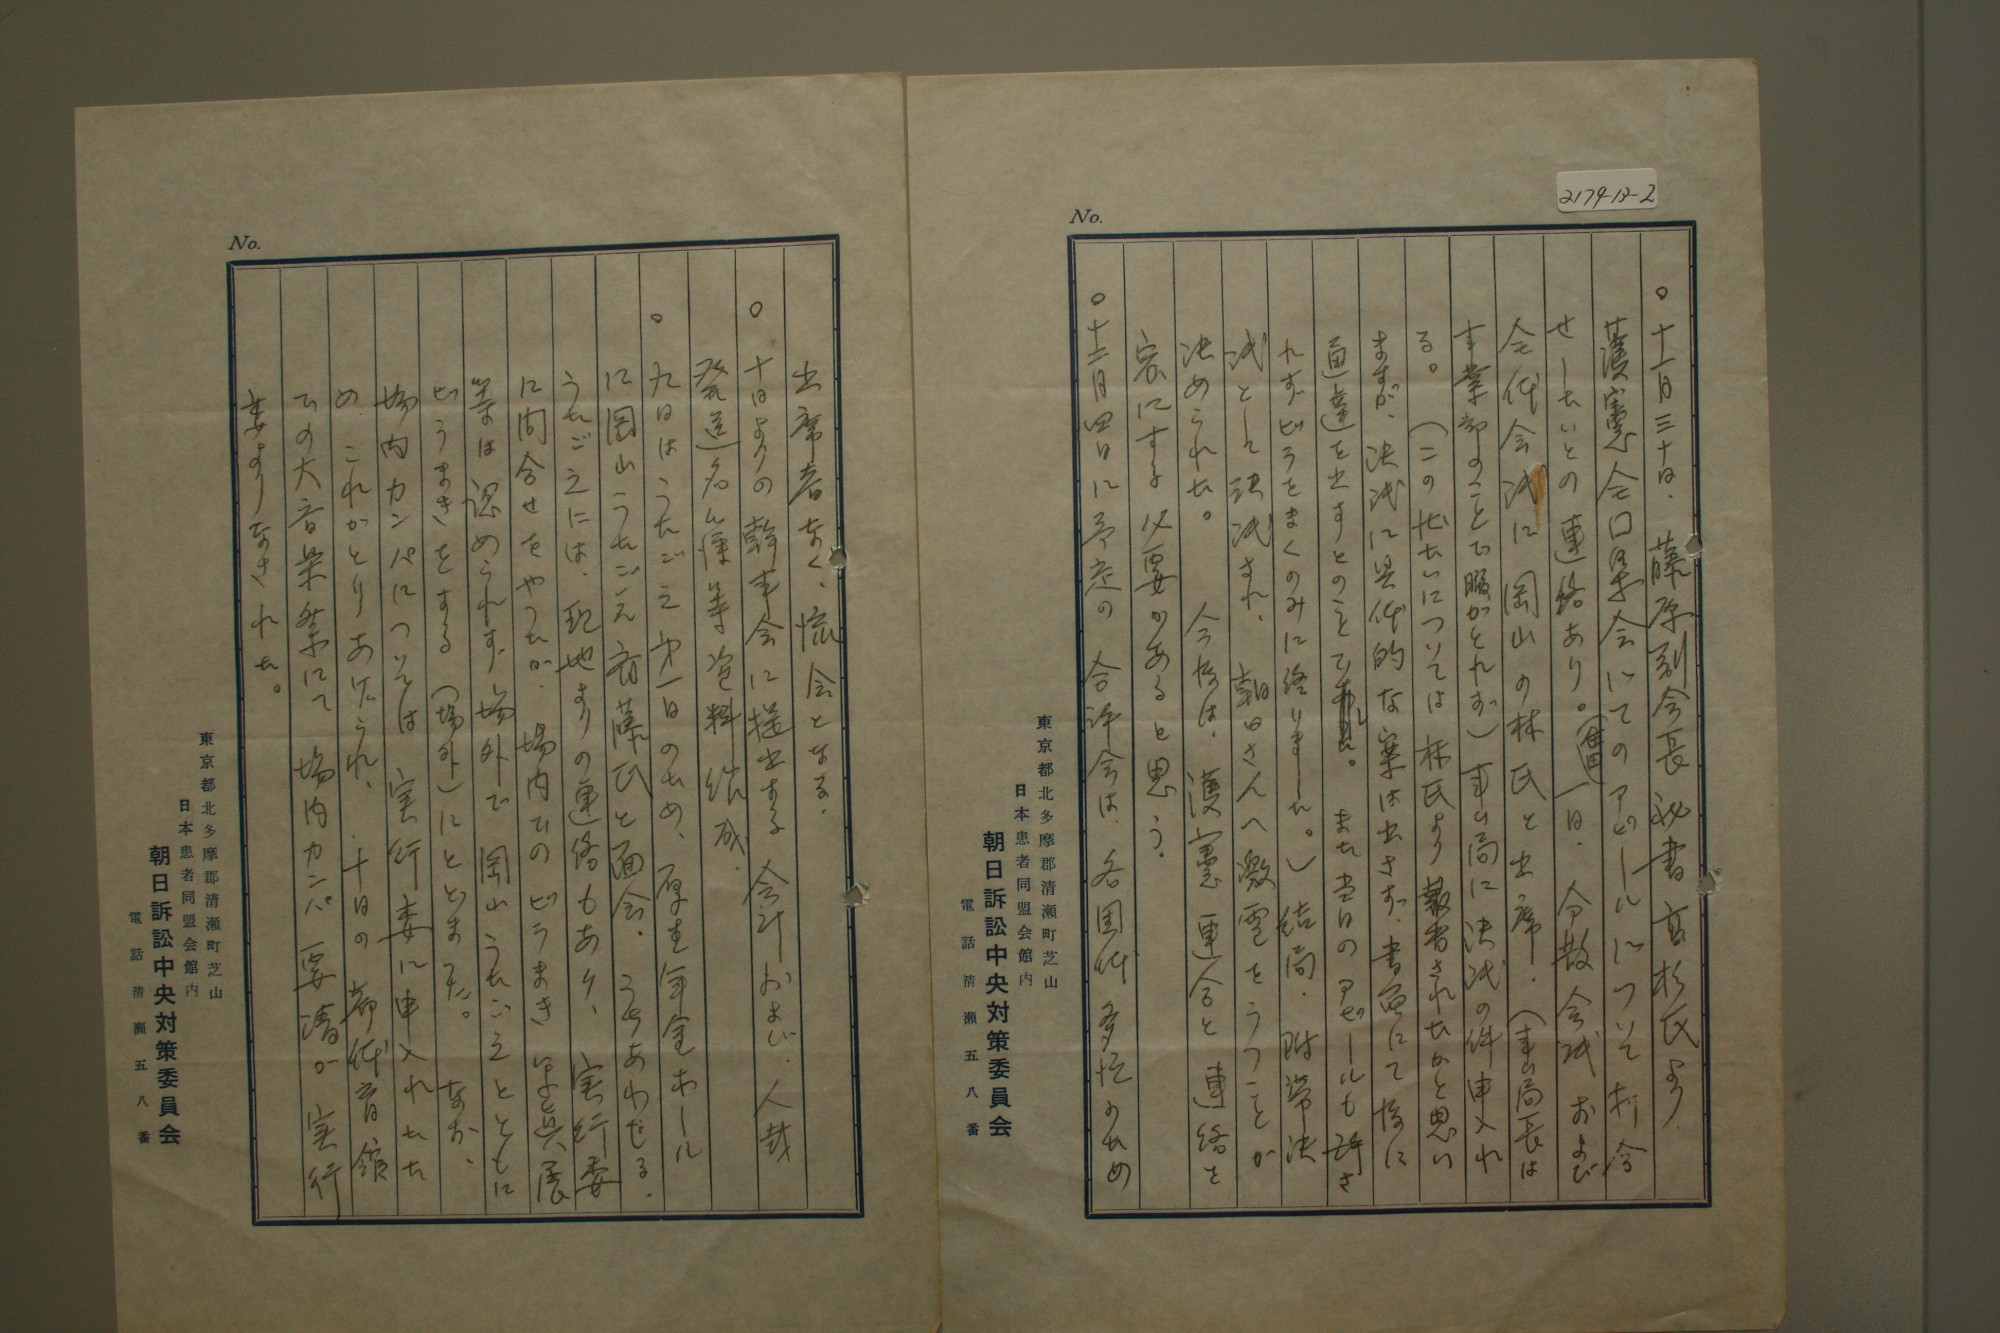 2179-12-2
No.
○十一月三十日、藤原副会長秘書高杉氏より
護憲全国集会にてのアピールについて打合
せしたいとの連絡あり。(翌)一日、分散会議および
全体会議に岡山の林氏と出席し、(事ム局長は
事業部のことで暇がとれず)事ム局に決議の件申入れ
る。(この状せいについては林氏より報告されたかと思い
ますが、決議に具体的な案は出さず、書面にて後に
通達を出すとのことでした。また当日のアピールも許さ
れずビラをまくのみに終りました。)結局、附帯決
議として決議され、朝日さんへ激電をうつことが
決められた。今後は、護憲連合と連絡を
密にする必要があると思う。
○十二月四日に予定の合評会は、各団体多忙のため
東京都北多摩郡清瀬町芝山
日本患者同盟会館内
朝日訴訟中央対策委員会
電話清瀬五八番
No.
出席者なく、流会となる。
○十日よりの幹事会に提出する会計および、人哉
発送名簿等資料結成
○九日はうたごえ第一日のため、厚生年金ホール
に岡山うたごえ斉藤氏と面会。うちあわせる。
うたごえには、現地よりの連絡もあり、実行委
に問合せをやったが、場内でのビラまき、写真展
等は認められず、場外で岡山うたごえとともに
ビラまきをする(場外)にとどまった。なお、
場内カンパについては実行委に申入れた
め、これがとりあげられ、十日の都体育館
での大音楽祭にて場内カンパ要請が実行
委よりなされた。
東京都北多摩郡清瀬町芝山
日本患者同盟会館内
朝日訴訟中央対策委員会
電話清瀬五八番